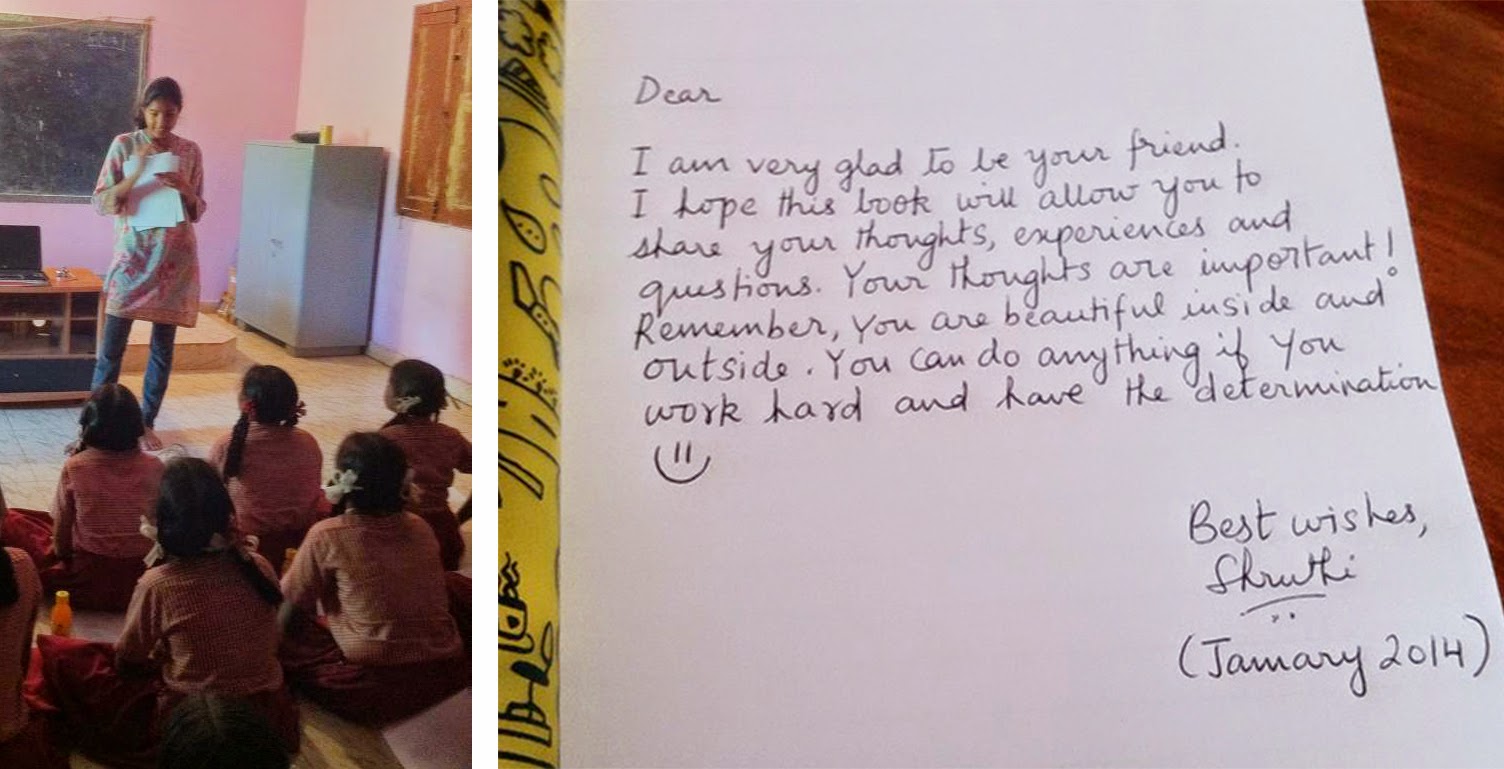 Dear
I am very glad to be your friend.
I hope this book will allow you to
share your thoughts, experiences and
questions. Your thoughts are important!
Remember, you are beautiful inside and
outside. You can do anything if you
work hard and have the determination
Best wishes,
Shruthi
(January 2014)